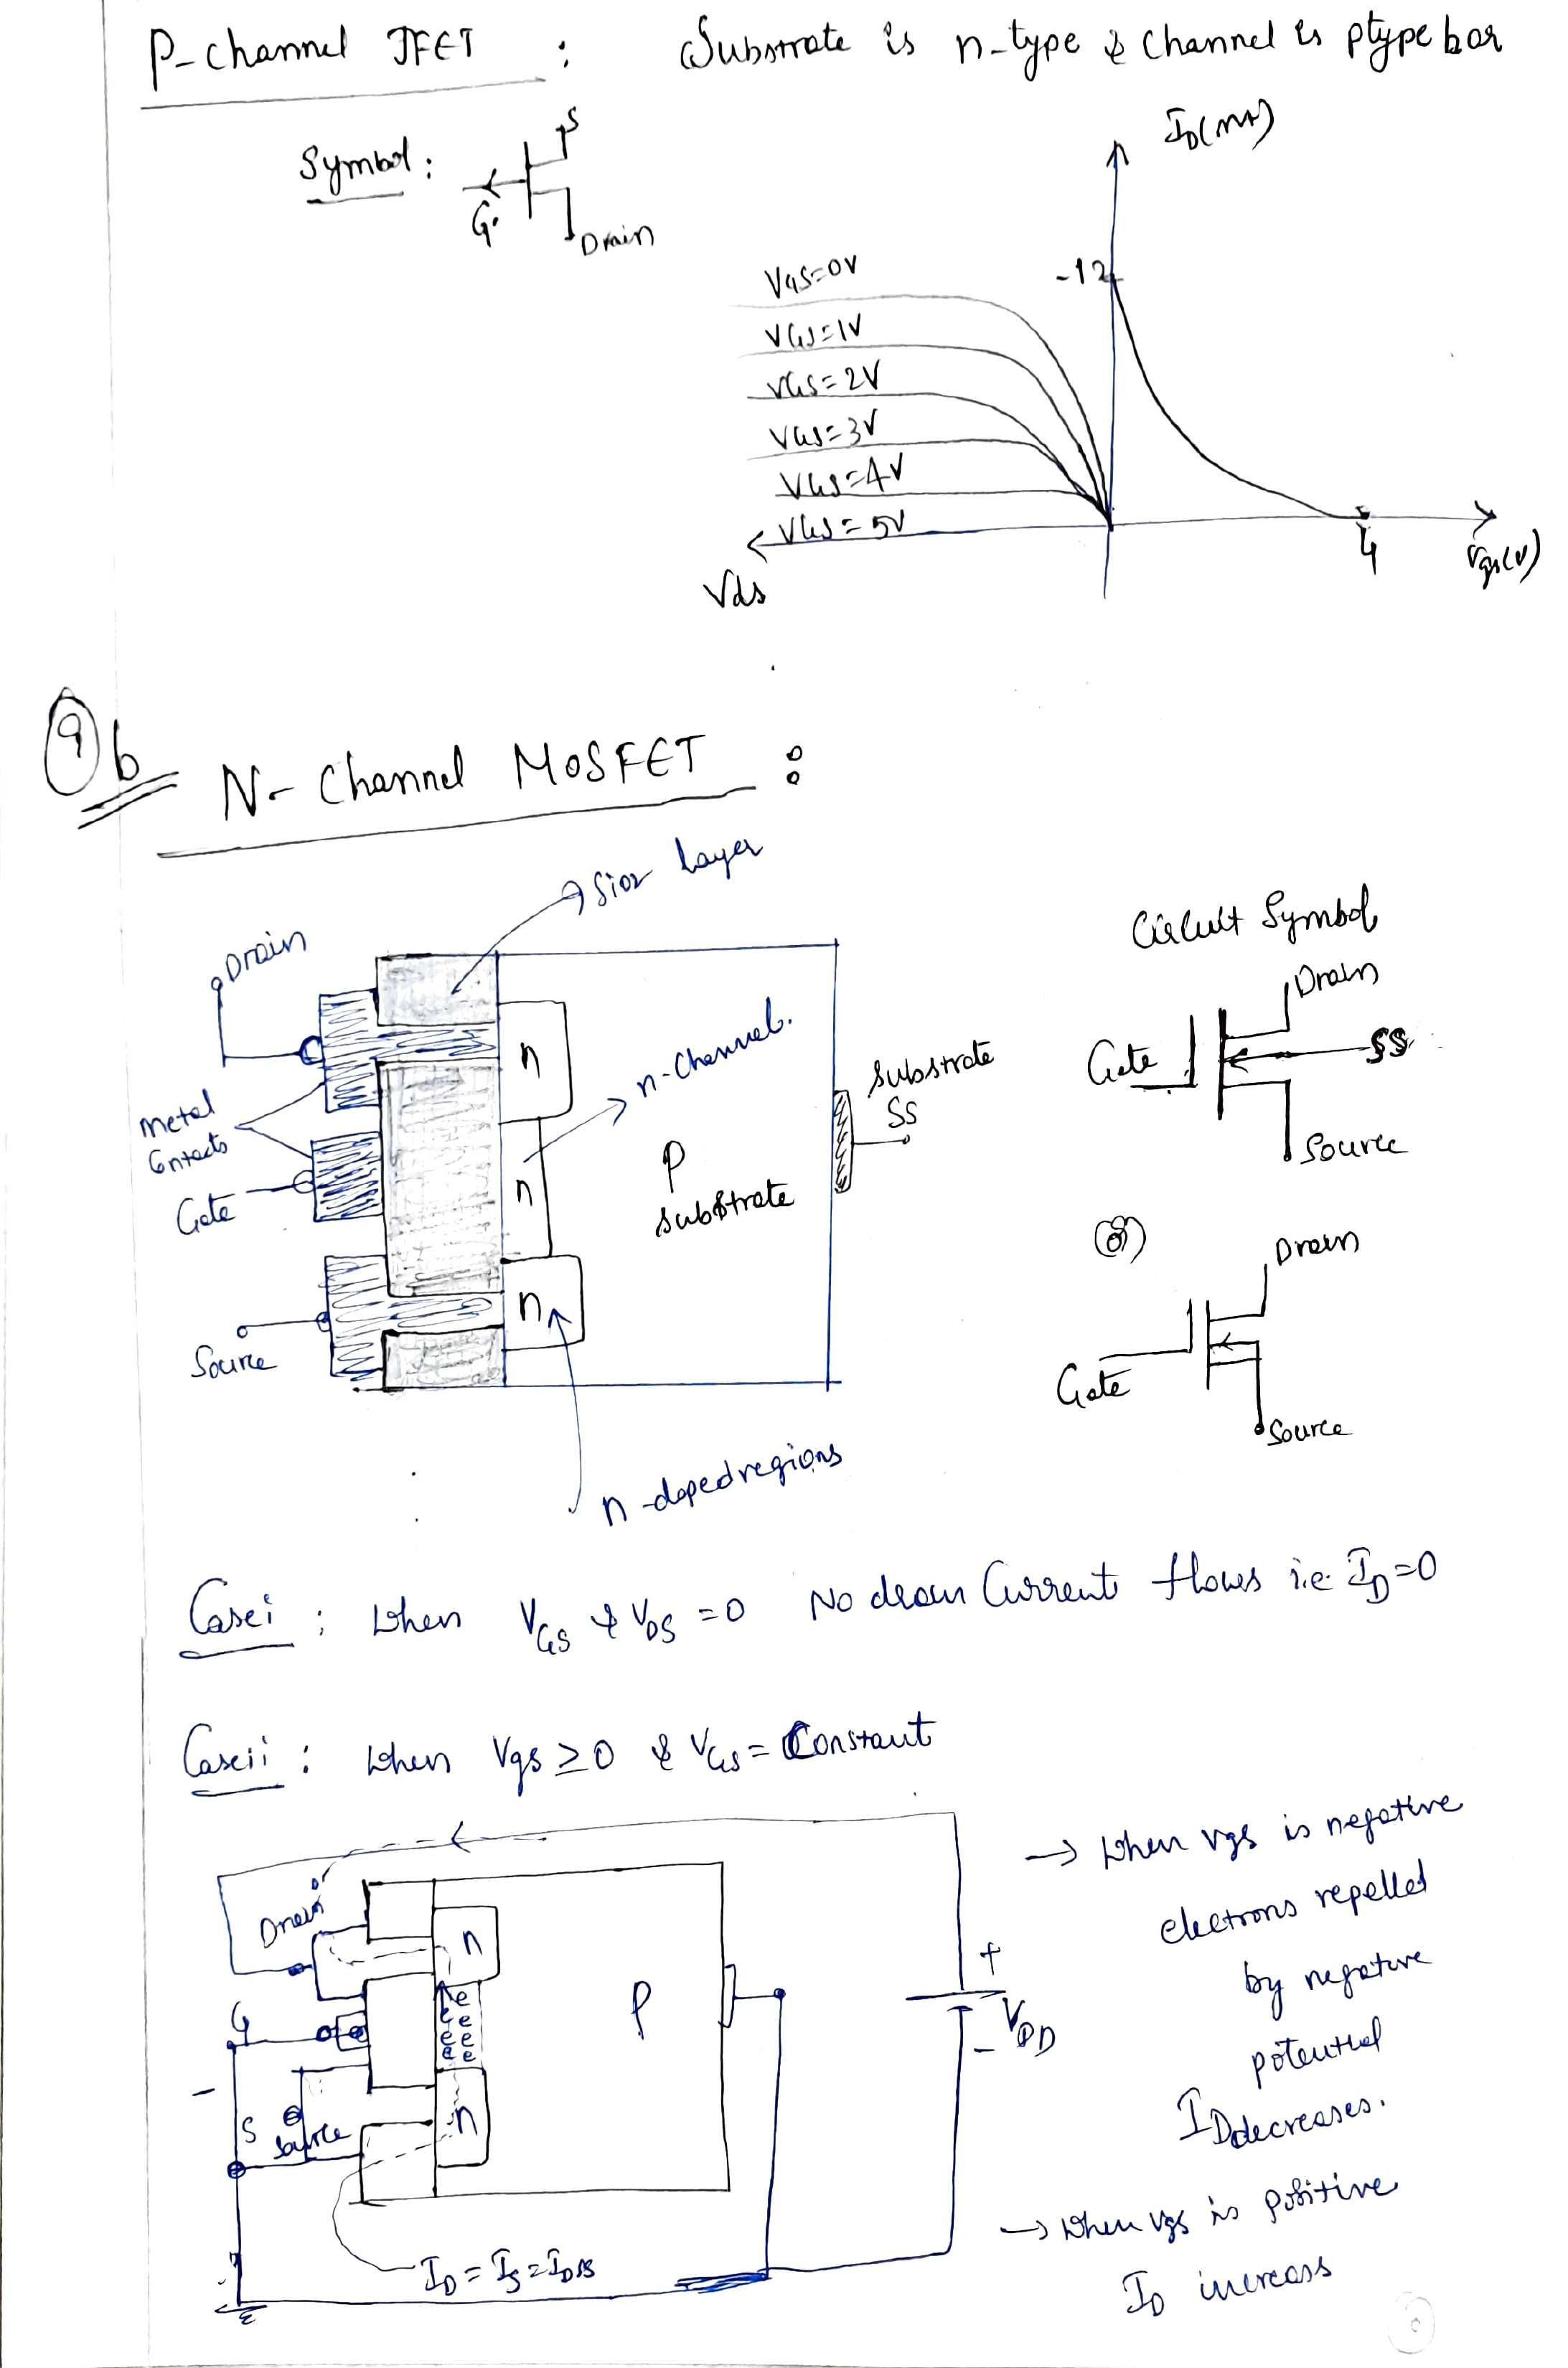 P-channel JFET : Substrate is n-type & Channel is ptype bar
Symbol:
S
G
Drain
ID(mA)
-12
VGS=0V
VGS=1V
VGS=2V
VGS=3V
VGS=4V
VGS=5V
Vds
4
Vgs(V)
9b
N-Channel MOSFET :
Sio2 Layer
Drain
Metal
Contacts
Gate
Source
n
n
n
n-Channel.
P
substrate
Substrate
SS
n-doped regions
Circuit Symbol
Drain
Gate
SS
Source
(or)
Drain
Gate
Source
Case i : When VGS & VDS = 0 No drain Current flows i.e ID=0
Case ii : When Vgs ≥ 0 & VGS = Constant
Drain
n
G
e
e e
e e
e e
P
S
Source
n
ID = IS = IDSS
+
VDD
-
→ When vgs is negative
electrons repelled
by negative
potential
ID decreases.
→ When vgs is positive
ID increass